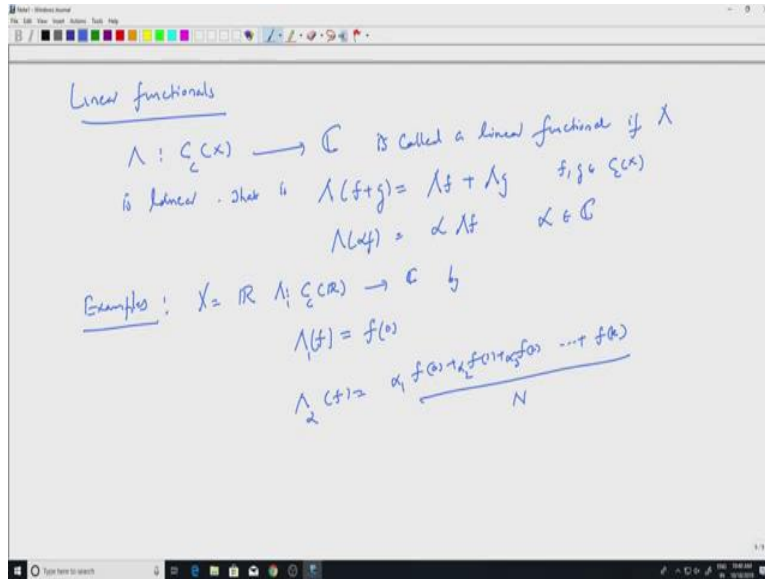 Note1 - Windows Journal
File Edit View Insert Actions Tools Help
Linear functionals
Λ : C_c(X) ⟶ ℂ is called a linear functional if Λ
is linear. That is Λ(f+g) = Λf + Λg f, g ∈ C_c(X)
Λ(αf) = α Λf α ∈ ℂ
Examples : X = ℝ Λ_1 : C_c(ℝ) → ℂ by
Λ_1(f) = f(0)
Λ_2(f) = α_1 f(0) + α_2 f(1) + α_3 f(2) ... + f(k)
N
1/1
Type here to search
ENG 10:40 AM
IN 10/10/2019